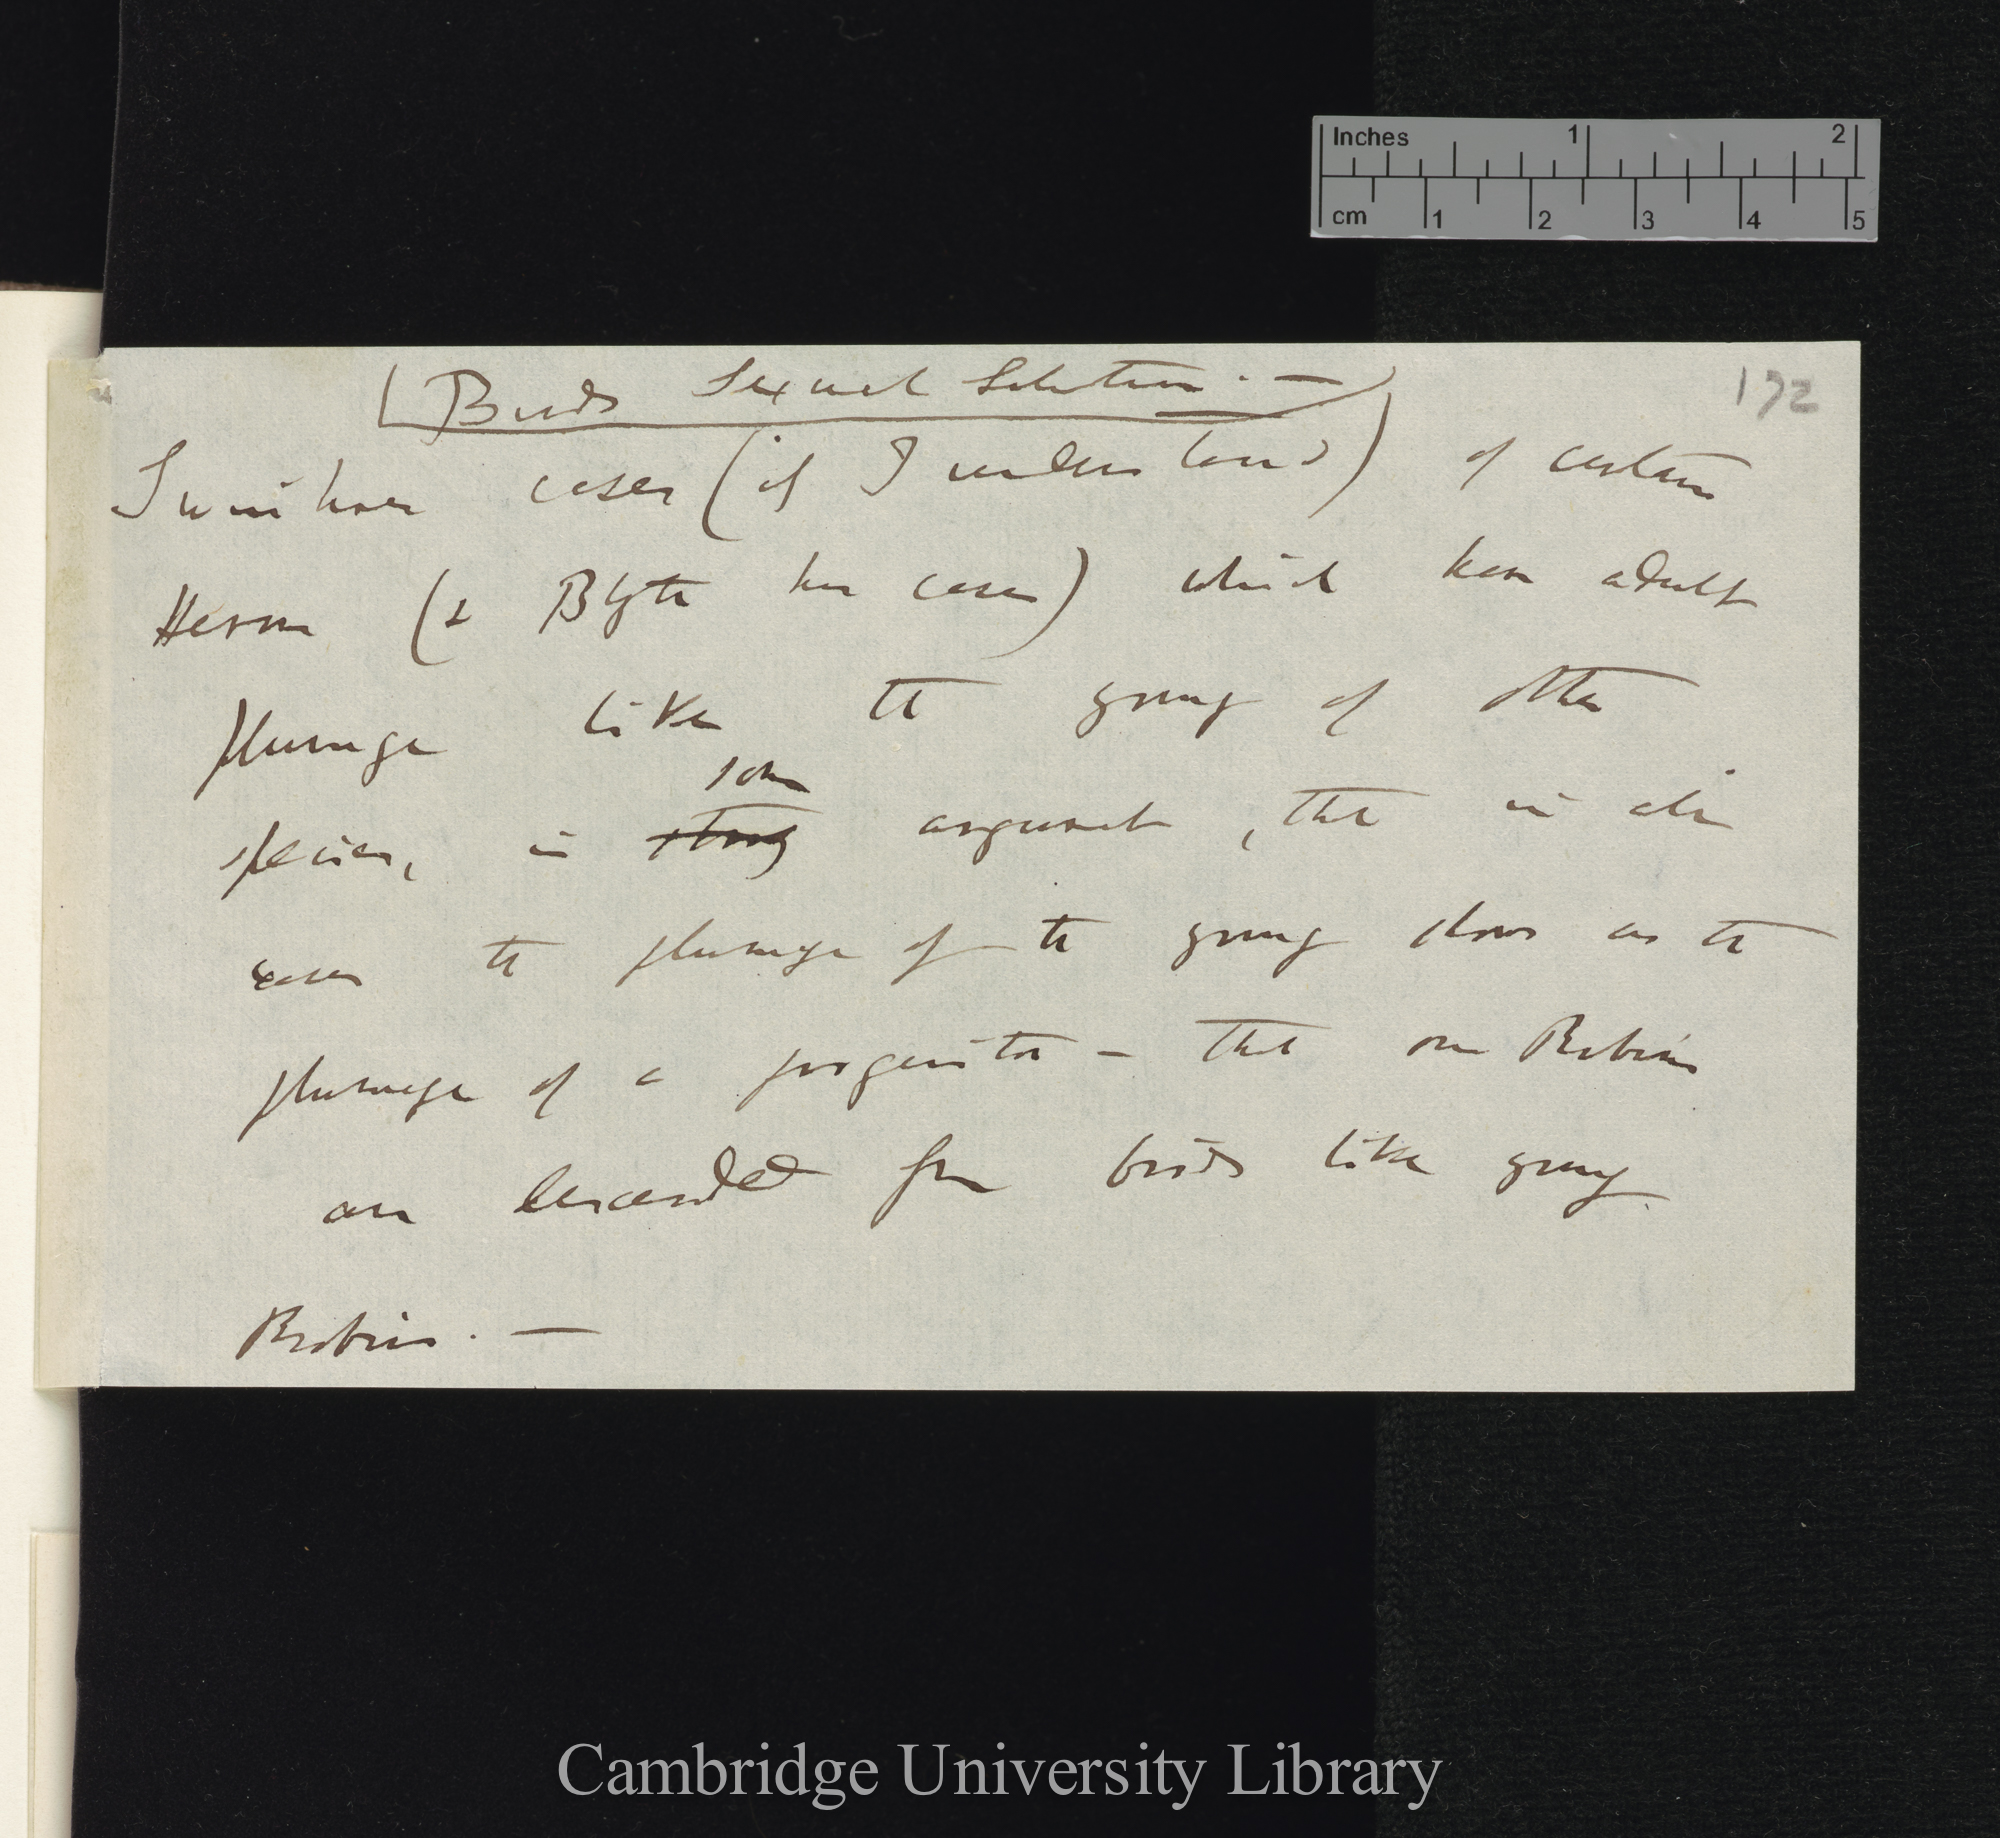 Inches 1 2
cm 1 2 3 4 5
172
(Birds Sexual Selection. —)
Swinhoes cases (if I understand) of certain
Herons (& Blyth has cases) which have adult
plumage like the young of other
some
species, is strong argument, that in
cases the plumage of the young shows us the
plumage of a progenitor — that our Robins
are descended from birds like young
Robins. —
Cambridge University Library